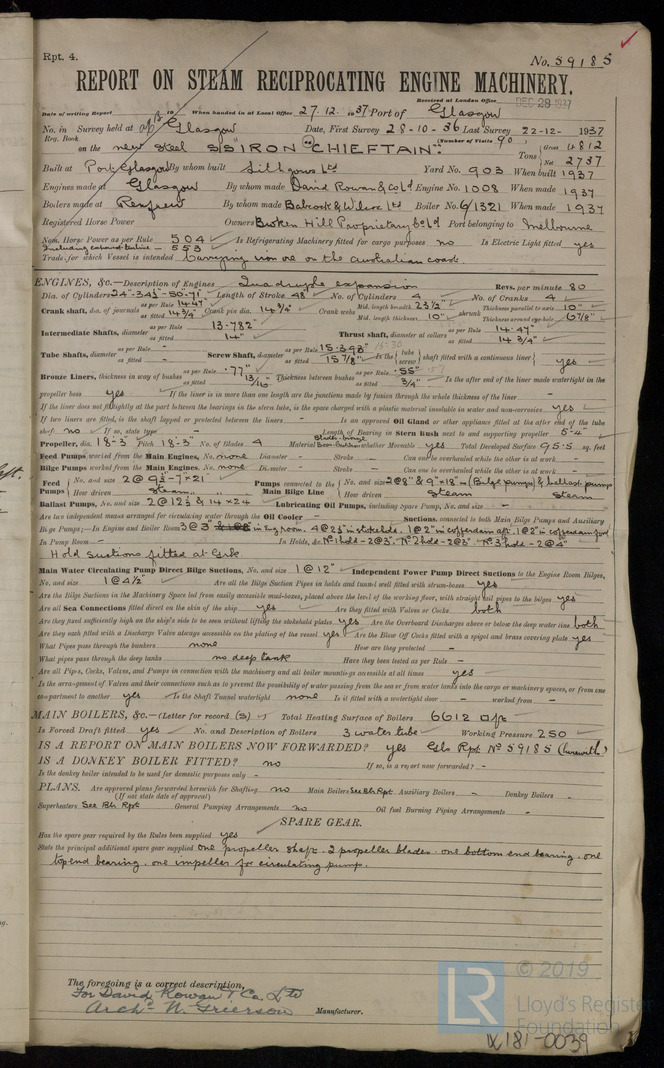 Rpt. 4.
No. 59185
REPORT ON STEAM RECIPROCATING ENGINE MACHINERY.
Received at London Office DEC 28 1937
Date of writing Report 19 When handed in at Local Office 27.12.1937 Port of Glasgow
No. in Survey held at Glasgow Date, First Survey 28-10-36 Last Survey 22-12- 1937
Reg. Book (Number of Visits 90)
on the new steel SS "IRON CHIEFTAIN" Tons Gross 4812 Net 2737
Built at Port Glasgow By whom built Lithgows Ltd Yard No. 903 When built 1937
Engines made at Glasgow By whom made David Rowan & Co Ltd Engine No. 1008 When made 1937
Boilers made at Renfrew By whom made Babcock & Wilcox Ltd Boiler No. 6/1321 When made 1937
Registered Horse Power Owners Broken Hill Proprietary Co Ld Port belonging to Melbourne
Nom. Horse Power as per Rule 504 Is Refrigerating Machinery fitted for cargo purposes no Is Electric Light fitted yes
Including exhaust turbine - 553
Trade for which Vessel is intended Carrying iron ore on the australian coast.
ENGINES, &c.—Description of Engines Quadruple expansion Revs. per minute 80
Dia. of Cylinders 24"-34½"-50"-71" Length of Stroke 48" No. of Cylinders 4 No. of Cranks 4
Crank shaft, dia. of journals as per Rule 14.47" as fitted 14¾" Crank pin dia. 14¾" Crank webs Mid. length breadth 23½" Mid. length thickness 10" shrunk Thickness parallel to axis 10" Thickness around eye-hole 6⅞"
Intermediate Shafts, diameter as per Rule 13.782" as fitted 14" Thrust shaft, diameter at collars as per Rule 14.47" as fitted 14¾"
Tube Shafts, diameter as per Rule - as fitted - Screw Shaft, diameter as per Rule 15.393" as fitted 15⅞" Is the tube screw shaft fitted with a continuous liner yes
Bronze Liners, thickness in way of bushes as per Rule .77" as fitted 13/16" Thickness between bushes as per Rule .55" as fitted ¾" Is the after end of the liner made watertight in the
propeller boss yes If the liner is in more than one length are the junctions made by fusion through the whole thickness of the liner -
If the liner does not fit tightly at the part between the bearings in the stern tube, is the space charged with a plastic material insoluble in water and non-corrosive yes
If two liners are fitted, is the shaft lapped or protected between the liners - Is an approved Oil Gland or other appliance fitted at the after end of the tube
shaft no If so, state type - Length of Bearing in Stern Bush next to and supporting propeller 5'-4"
Propeller, dia. 18'-3" Pitch 18'-3" No. of Blades 4 Material whether Moveable yes Total Developed Surface 95.5 sq. feet
Feed Pumps worked from the Main Engines, No. none Diameter - Stroke - Can one be overhauled while the other is at work -
Bilge Pumps worked from the Main Engines, No. none Diameter - Stroke - Can one be overhauled while the other is at work -
Feed Pumps No. and size 2@ 9½"-7"×21" How driven Steam Pumps connected to the Main Bilge Line No. and size 2@8" & 9"×18" (Bilge pumps) & ballast pumps How driven Steam Steam
Ballast Pumps, No. and size 2@12½ & 14×24 Lubricating Oil Pumps, including Spare Pump, No. and size -
Are two independent means arranged for circulating water through the Oil Cooler - Suctions, connected to both Main Bilge Pumps and Auxiliary
Bilge Pumps;—In Engine and Boiler Room 3@3" in Eng room. 4@2½" in stokehold. 1@2" in cofferdam aft. 1@2" in cofferdam ford
In Pump Room - In Holds, &c. No 1 hold - 2@3". No 2 hold - 2@3" No 3 hold - 2@4"
Hold suctions fitted at Gsk.
Main Water Circulating Pump Direct Bilge Suctions, No. and size 1@12" Independent Power Pump Direct Suctions to the Engine Room Bilges,
No. and size 1@4½" Are all the Bilge Suction Pipes in holds and tunnel well fitted with strum-boxes yes
Are the Bilge Suctions in the Machinery Space led from easily accessible mud-boxes, placed above the level of the working floor, with straight tail pipes to the bilges yes
Are all Sea Connections fitted direct on the skin of the ship yes Are they fitted with Valves or Cocks both
Are they fixed sufficiently high on the ship's side to be seen without lifting the stokehold plates yes Are the Overboard Discharges above or below the deep water line both
Are they each fitted with a Discharge Valve always accessible on the plating of the vessel yes Are the Blow Off Cocks fitted with a spigot and brass covering plate yes
What Pipes pass through the bunkers none How are they protected -
What pipes pass through the deep tanks no deep tank Have they been tested as per Rule -
Are all Pipes, Cocks, Valves, and Pumps in connection with the machinery and all boiler mountings accessible at all times yes
Is the arrangement of Valves and their connections such as to prevent the possibility of water passing from the sea or from water tanks into the cargo or machinery spaces, or from one
compartment to another yes Is the Shaft Tunnel watertight none Is it fitted with a watertight door - worked from -
MAIN BOILERS, &c.—(Letter for record (S)) Total Heating Surface of Boilers 6612 □ft
Is Forced Draft fitted yes No. and Description of Boilers 3 water tube Working Pressure 250
IS A REPORT ON MAIN BOILERS NOW FORWARDED? yes Gls Rpt. No 59185 (herewith)
IS A DONKEY BOILER FITTED? no If so, is a report now forwarded? -
Is the donkey boiler intended to be used for domestic purposes only -
PLANS. Are approved plans forwarded herewith for Shafting no Main Boilers See Blr Rpt. Auxiliary Boilers - Donkey Boilers -
(If not state date of approval)
Superheaters See Blr Rpt General Pumping Arrangements no Oil fuel Burning Piping Arrangements -
SPARE GEAR.
Has the spare gear required by the Rules been supplied yes
State the principal additional spare gear supplied one propeller shaft. 2 propeller blades. one bottom end bearing. one
top end bearing. one impeller for circulating pump.
The foregoing is a correct description,
For David Rowan & Co. Ltd
Archd N. Grierson Manufacturer.
LR © 2019
Lloyd's Register
Foundation
W181-0039